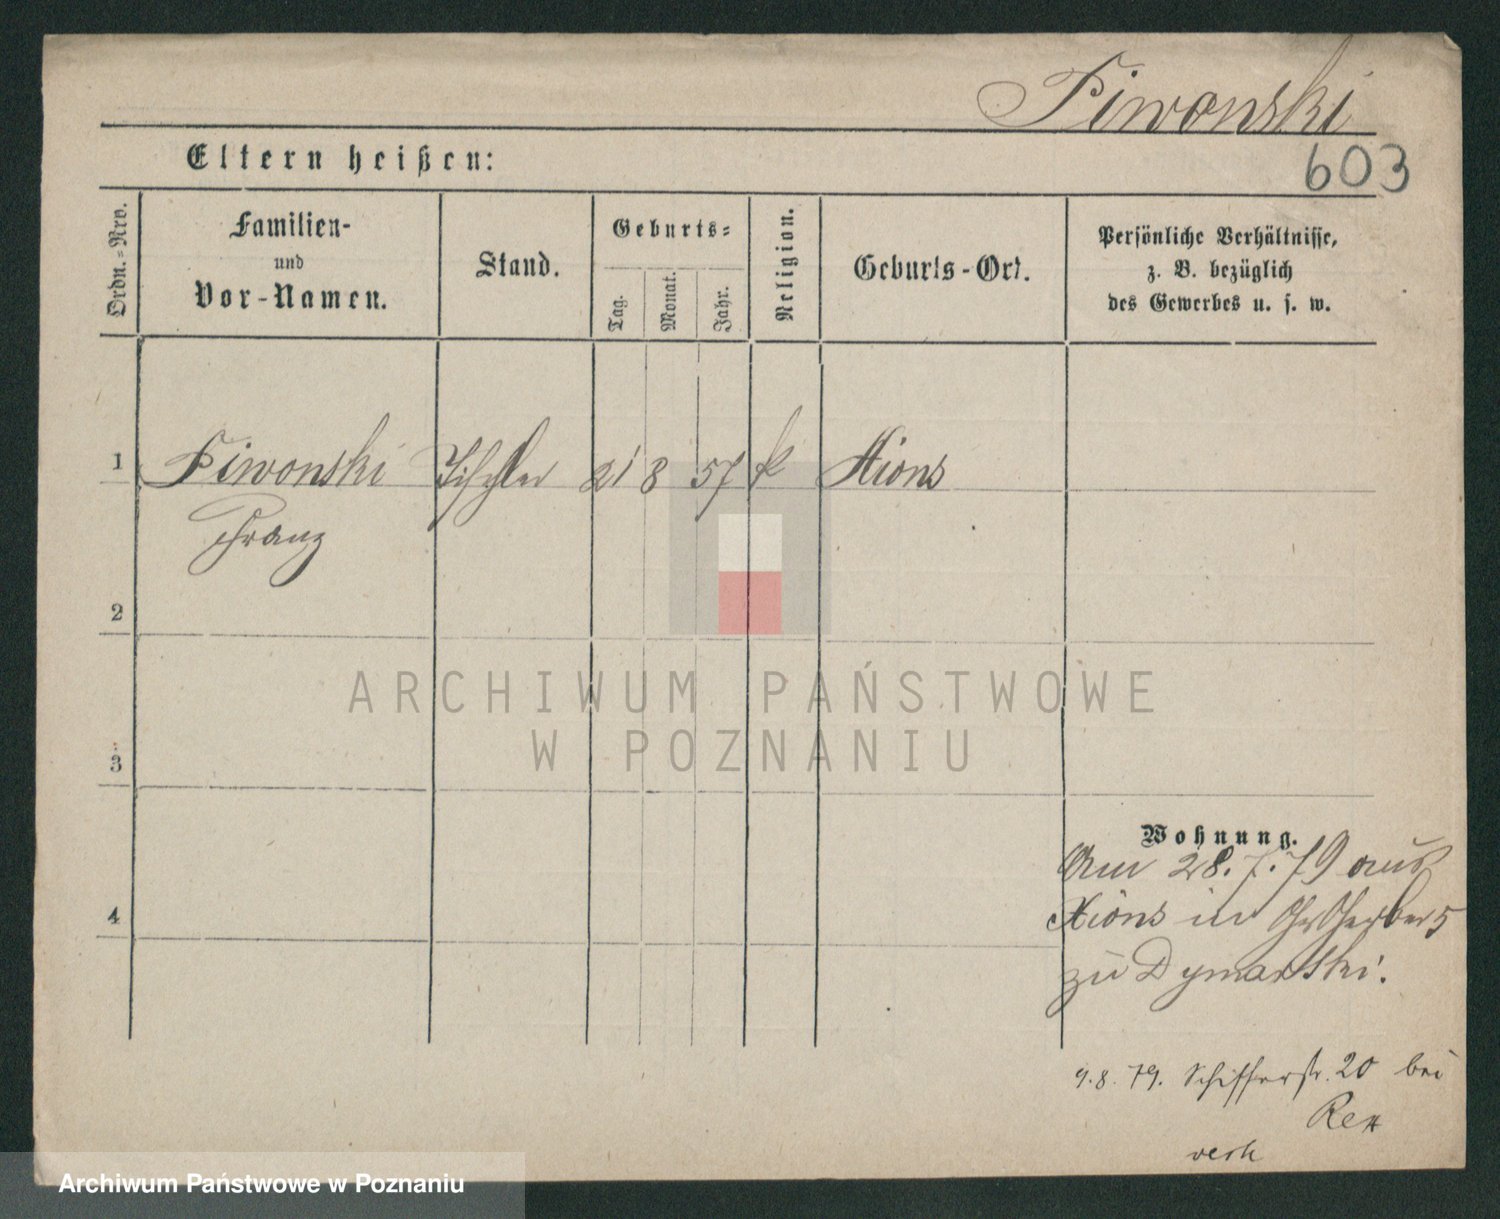 Piwonski
603
Eltern heißen:
Ordn.-Nro.
Familien-
und
Vor-Namen.
Stand.
Geburts-
Tag.
Monat.
Jahr.
Religion.
Geburts-Ort.
Persönliche Verhältnisse,
z. B. bezüglich
des Gewerbes u. s. w.
1 Piwonski Tischler 21 8 57 k Xions
Franz
2
3
4
Wohnung.
Am 28.7.79 aus
Xions in Gr Gerber 5
zu Dymarski.
9.8.79. Schifferstr. 20 bei
ARCHIWUM PAŃSTWOWE
W POZNANIU
Archiwum Państwowe w Poznaniu